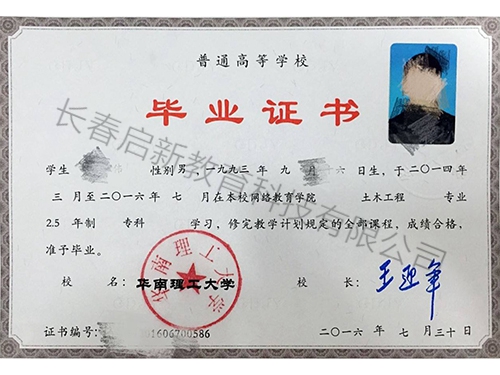 普通高等学校
毕业证书
学生 伟 性别男，一九九三年 九 月 六日生，于二〇一四年
三 月至二〇一六年 七 月在本校网络教育学院 土木工程 专业
2.5 年制 专科 学习，修完教学计划规定的全部课程，成绩合格，
准予毕业。
校 名：华南理工大学 校 长：
华南理工大学
证书编号： 1606700586 二〇一六 年 七 月三十日
长春启新教育科技有限公司